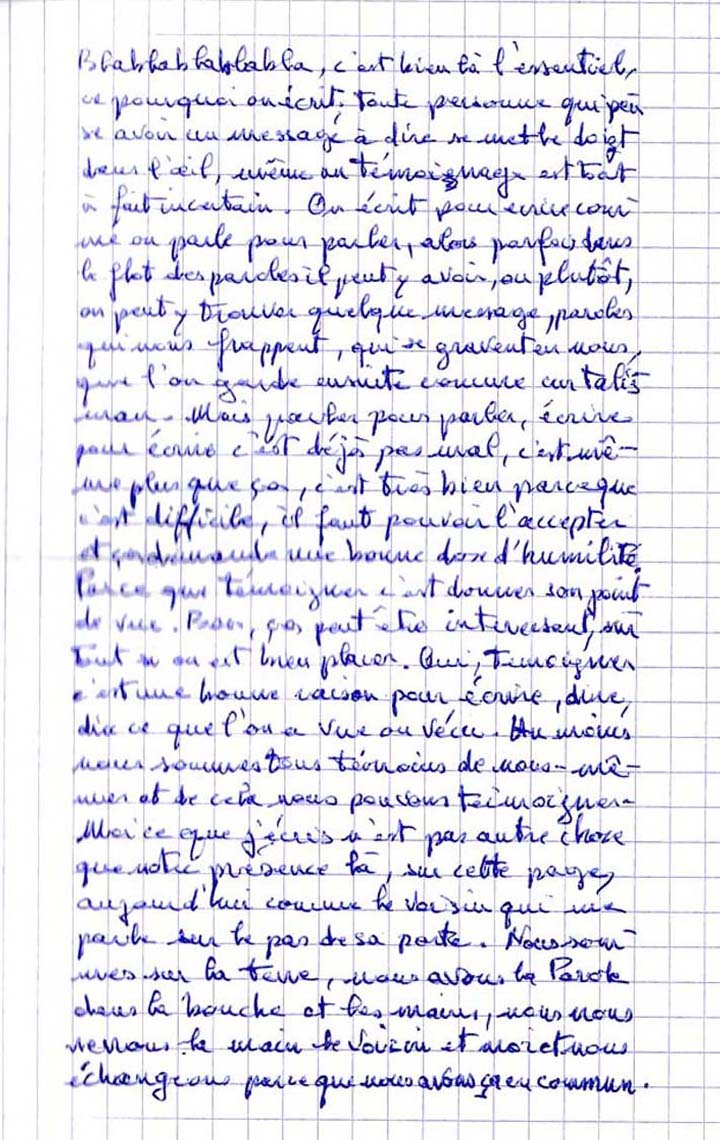 Blablablablabla, c'est bien là l'essentiel,
ce pourquoi on écrit. Toute personne qui pen
se avoir un message à dire se met le doigt
dans l'œil, même un témoignage est tout
à fait incertain. On écrit pour écrire com
me on parle pour parler, alors parfois dans
le flot des paroles il peut y avoir, ou plutôt,
on peut y trouver quelque message, paroles
qui nous frappent, qui se gravent en nous,
que l'on garde ensuite comme un talis
man. Mais parler pour parler, écrire
pour écrire c'est déjà pas mal, c'est mê-
me plus que ça, c'est très bien parce que
c'est difficile, il faut pouvoir l'accepter
et ça demande une bonne dose d'humilité.
Parce que témoigner c'est donner son point
de vue. Bon, ça peut être interessant, sur
tout si on est bien placer. Oui, témoigner
c'est une bonne raison pour écrire, dire,
dire ce que l'on a vue ou vécu. Au moins
nous sommes tous témoins de nous-mê-
mes et de cela nous pouvons témoigner.
Moi ce que j'écris n'est pas autre chose
que notre présence là, sur cette page,
aujourd'hui comme le voisin qui me
parle sur le pas de sa porte. Nous som
mes sur la terre, nous avons la Parole
dans la bouche et les mains, nous nous
serrons la main le voisin et moi et nous
échangeons parce que nous avons ça en commun.